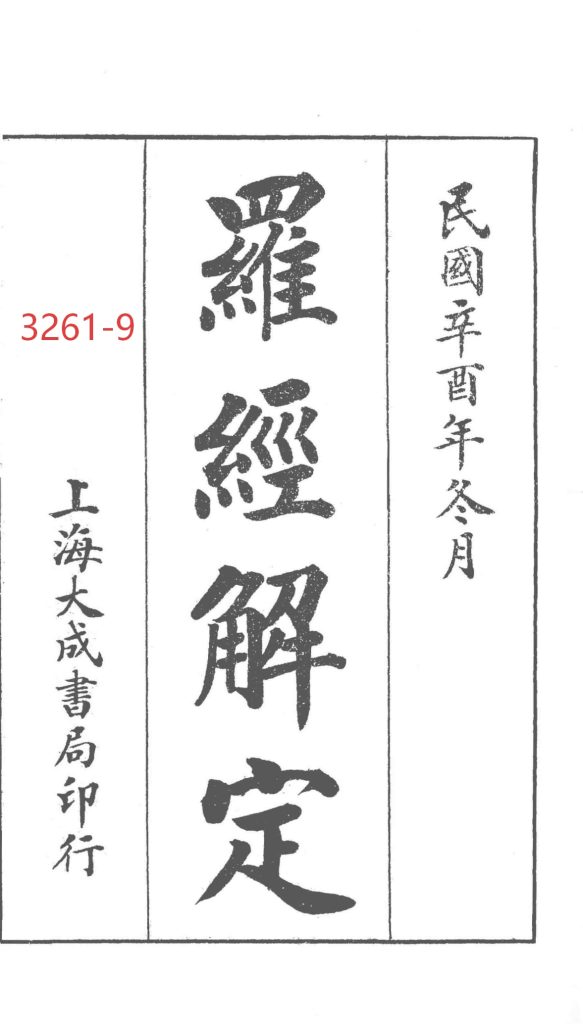 民國辛酉年冬月
羅經解定
上海大成書局印行
3261-9